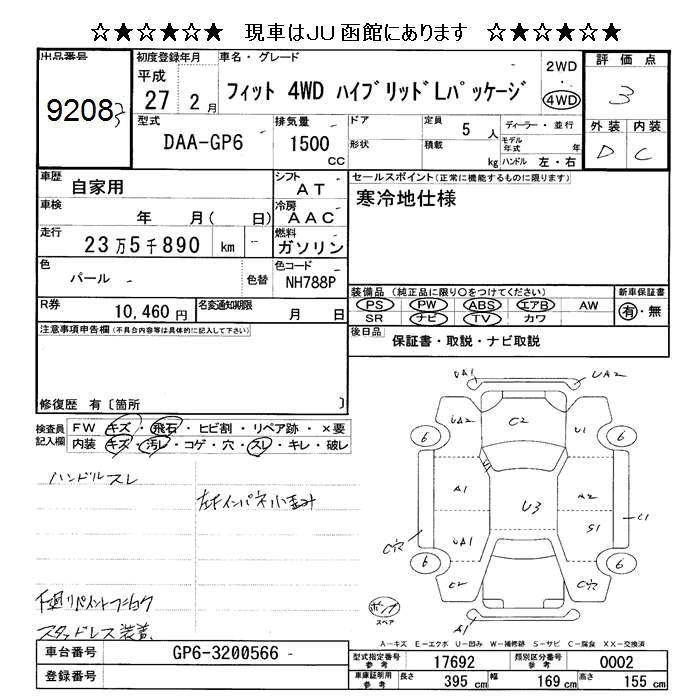 ☆★☆★☆★ 現車はJU函館にあります ☆★☆★☆★
出品番号
9208
初度登録年月
平成
27 2 月
車名・グレード
フィット 4WD ハイブリッドLパッケージ
2WD
4WD
評価点
3
外装 内装
D C
型式
DAA-GP6
排気量
1500
CC
ドア
形状
定員
5 人
積載
kg
ディーラー・並行
モデル年式 年
ハンドル 左・右
車歴
自家用
シフト
AT
車検
年 月( 日)
冷房
AAC
走行
23万5千890 km
燃料
ガソリン
色
パール
色替
色コード
NH788P
R券
10,460円
名変通知期限
月 日
セールスポイント(正常に機能するものに限ります)
寒冷地仕様
装備品(純正品に限り○をつけてください)
PS PW ABS エアB AW
SR ナビ TV カワ
新車保証書
有・無
後日品
保証書・取説・ナビ取説
注意事項申告欄(不具合内容等は具体的に記入して下さい)
修復歴 有〔箇所 〕
検査員記入欄
FW キズ・飛石・ヒビ割・リペア跡・×要
内装 キズ・汚レ・コゲ・穴・スレ・キレ・破レ
ハンドルスレ
左下インパネ小歪み
下廻リペイントフニョク
スタッドレス装着
UA1
UA2
UA2
C2
U1
6
6
U
A1
U3
A2
UA1
S1
C穴
U1
6
6
C2
C穴
ボンプ
スペア
A1
A-キズ E-エクボ U-凹み W-補修跡 S-サビ C-腐食 XX-交換済
車台番号
GP6-3200566
登録番号
型式指定番号参考
17692
類別区分番号参考
0002
車庫証明用参考
長さ 395 cm
幅 169 cm
高さ 155 cm